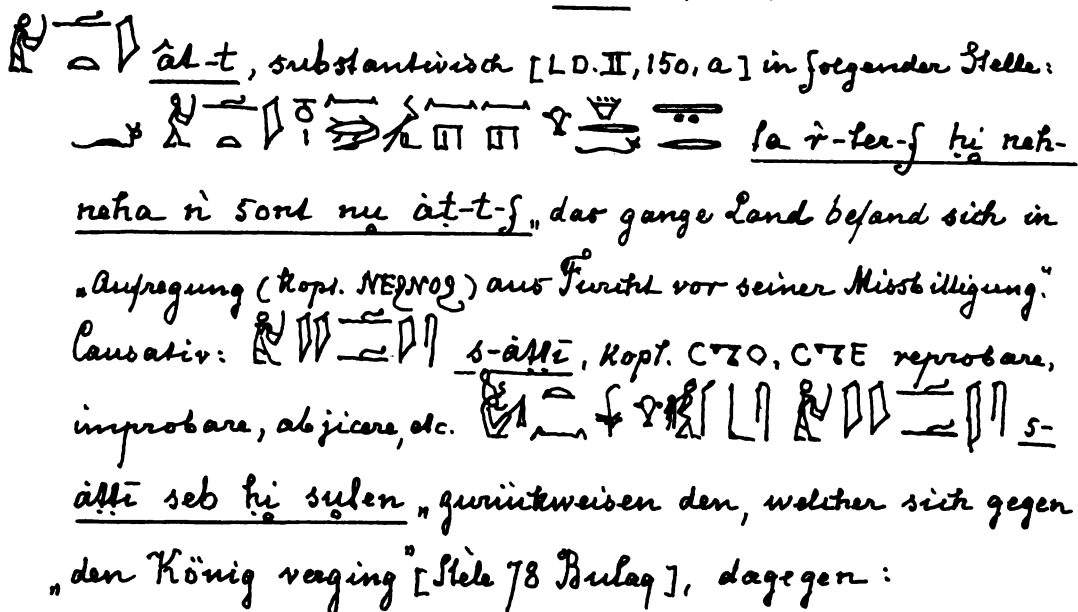 ȧt-t, substantivisch [LD. II, 150, a] in folgender Stelle:
ta r̀-ter-f ḥi neh-
neha ǹ sont nu ȧt-t-f „das ganze Land befand sich in
„Aufregung (kopt. ⲛⲉϩⲛⲟϩ) aus Furcht vor seiner Missbilligung.“
Causativ: s-ȧttī, kopt. ⲥⲧⲟ, ⲥⲧⲉ reprobare,
improbare, abjicere, etc. s-
ȧttī seb ḥi suten „zurückweisen den, welcher sich gegen
„den König verging“ [Stèle 78 Bulaq], dagegen: